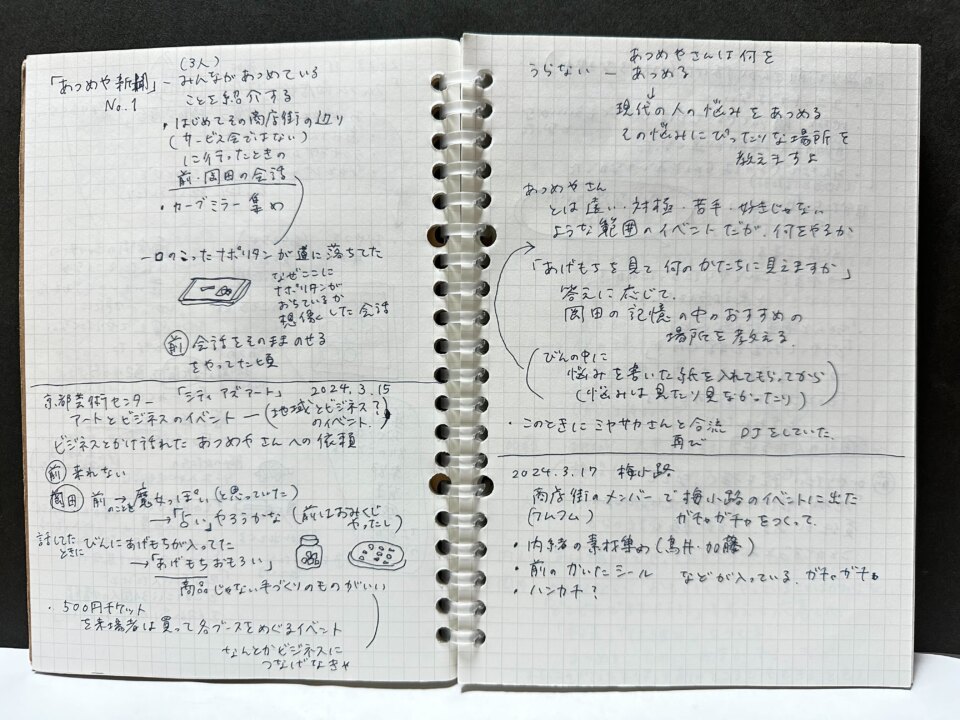 (3人)
「あつめや新聞」 ― みんながあつめている
No.1
ことを紹介する
・はじめてその商店街の辺り
(サービス会ではない)
に行ったときの
前・岡田の会話
・カーブミラー集め
一口のこったナポリタンが道に落ちてた
なぜここに
ナポリタンが
おちているか
想像した会話
前 会話をそのままのせる
をやってた頃
「シティ アズ アート」 2024.3.15
京都芸術センター
アートとビジネスのイベント ― (地域とビジネス?のイベント.)
ビジネスとかけ話れた あつめやさんへの依頼
前 来れない
岡田 前のことを→魔女っぽい(と思っていた)
→「占い」やろうかな (前はおみくじやったし)
話してたときに びんにあげもちが入ってた
→「あげもちおもろい」
商品じゃない手づくりのものがいい
・500円チケット
を来場者は買って各ブースをめぐるイベント
なんとかビジネスに
つなげなきゃ
あつめやさんは何を
うらない ― あつめる
↓
現代の人の悩みをあつめる
その悩みにぴったりな場所を
教えますよ
あつめやさん
とは遠い・対極・苦手・好きじゃない
ような範囲のイベントだが、何をやるか
「あげもちを見て何のかたちに見えますか」
答えに応じて、
岡田の記憶の中のおすすめの
場所を教える.
(びんの中に
悩みを書いた紙を入れてもらってから
(悩みは見たり見なかったり))
・このときにミヤサカさんと合流
再び DJをしていた.
2024.3.17 梅小路
商店街のメンバーで梅小路のイベントに出た
(フムフム) ガチャガチャをつくって.
・内緒の素材集め(鳥井・加藤)
・前のかいたシール などが入っている. ガチャガチャ
・ハンカチ?